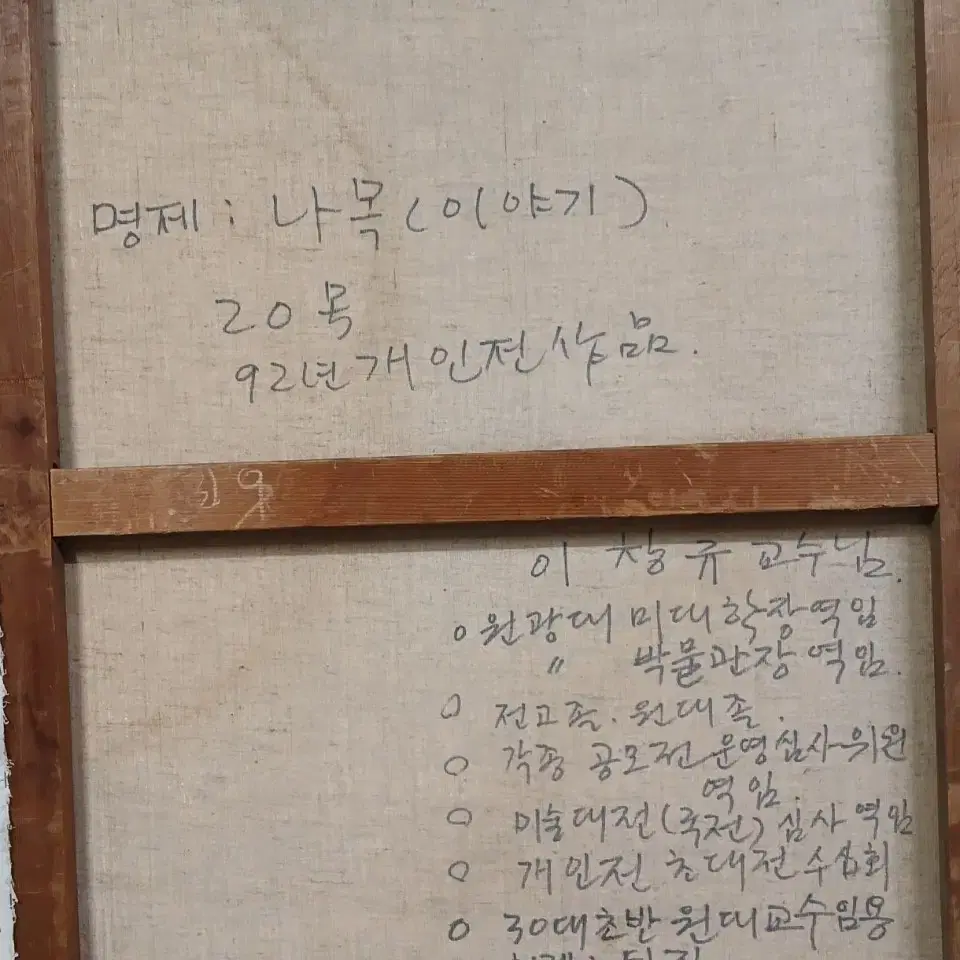 명제: 나목(이야기)
20 목
92년 개인전 作品.
19
이 창 규 교수님.
○ 원광대 미대학장 역임
〃 박물관장 역임.
○ 전고졸. 원대졸.
○ 각종 공모전 운영심사위원
역임.
○ 미술대전(국전) 심사 역임
○ 개인전 초대전 수십회
○ 30대초반 원대교수임용